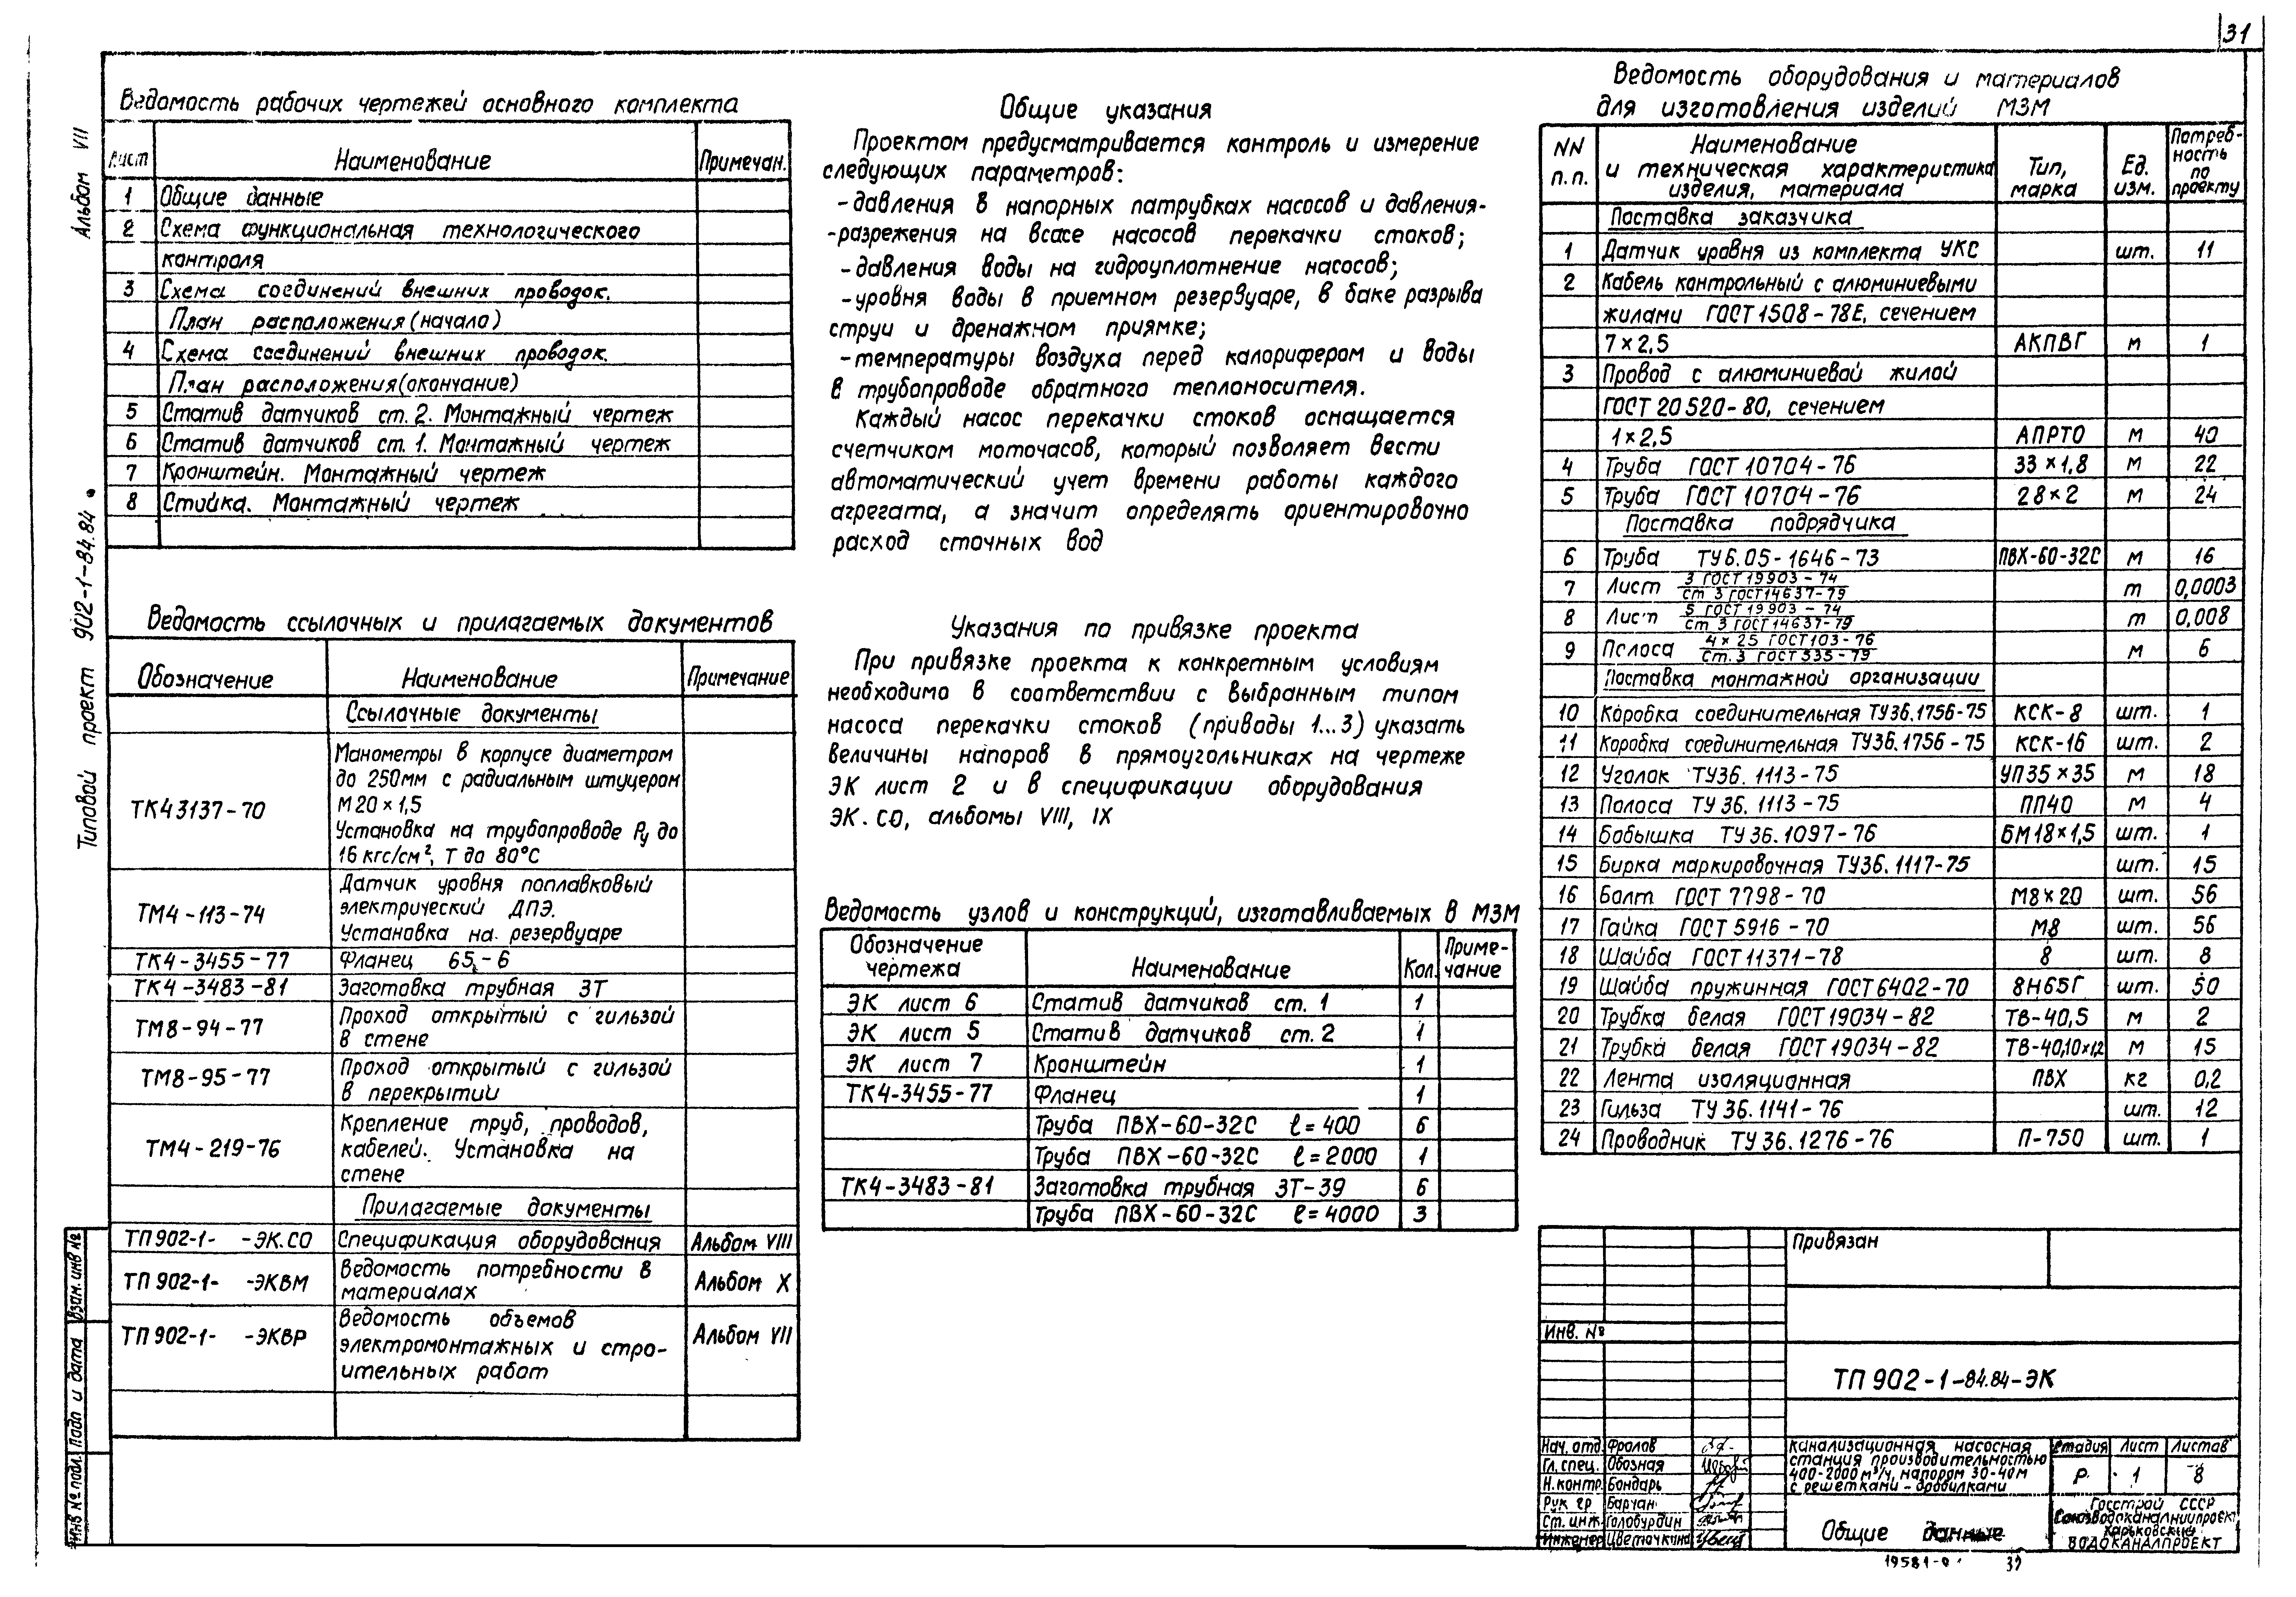 31
Альбом VII
Типовой проект 902-1-84.84
Взам. инв №
Подп и дата
Инв № подл.
Ведомость рабочих чертежей основного комплекта
Лист Наименование Примечан.
1 Общие данные
2 Схема функциональная технологического
контроля
3 Схема соединений внешних проводок.
План расположения (начало)
4 Схема соединений внешних проводок.
План расположения (окончание)
5 Статив датчиков ст. 2. Монтажный чертеж
6 Статив датчиков ст. 1. Монтажный чертеж
7 Кронштейн. Монтажный чертеж
8 Стойка. Монтажный чертеж
Ведомость ссылочных и прилагаемых документов
Обозначение Наименование Примечание
Ссылочные документы
Манометры в корпусе диаметром
до 250мм с радиальным штуцером
ТК43137-70 М20×1,5
Установка на трубопроводе Ру до
16 кгс/см², Т до 80°С
Датчик уровня поплавковый
ТМ4-113-74 электрический ДПЭ.
Установка на резервуаре
ТК4-3455-77 Фланец 65-6
ТК4-3483-81 Заготовка трубная ЗТ
ТМ8-94-77 Проход открытый с гильзой
в стене
ТМ8-95-77 Проход открытый с гильзой
в перекрытии
Крепление труб, проводов,
ТМ4-219-76 кабелей. Установка на
стене
Прилагаемые документы
ТП902-1- -ЭК.СО Спецификация оборудования Альбом VIII
ТП 902-1- -ЭКВМ Ведомость потребности в Альбом X
материалах
ТП 902-1- -ЭКВР Ведомость объемов Альбом VII
электромонтажных и стро-
ительных работ
Общие указания
Проектом предусматривается контроль и измерение
следующих параметров:
-давления в напорных патрубках насосов и давления-
-разрежения на всасе насосов перекачки стоков;
-давления воды на гидроуплотнение насосов;
-уровня воды в приемном резервуаре, в баке разрыва
струи и дренажном приямке;
-температуры воздуха перед калорифером и воды
в трубопроводе обратного теплоносителя.
Каждый насос перекачки стоков оснащается
счетчиком моточасов, который позволяет вести
автоматический учет времени работы каждого
агрегата, а значит определять ориентировочно
расход сточных вод
Указания по привязке проекта
При привязке проекта к конкретным условиям
необходимо в соответствии с выбранным типом
насоса перекачки стоков (приводы 1...3) указать
величины напоров в прямоугольниках на чертеже
ЭК лист 2 и в спецификации оборудования
ЭК.СО, альбомы VIII, IX
Ведомость узлов и конструкций, изготавливаемых в МЗМ
Обозначение чертежа Наименование Кол. Приме-чание
ЭК лист 6 Статив датчиков ст. 1 1
ЭК лист 5 Статив датчиков ст. 2 1
ЭК лист 7 Кронштейн 1
ТК4-3455-77 Фланец 1
Труба ПВХ-60-32С ℓ=400 6
Труба ПВХ-60-32С ℓ=2000 1
ТК4-3483-81 Заготовка трубная ЗТ-39 6
Труба ПВХ-60-32С ℓ=4000 3
Ведомость оборудования и материалов
для изготовления изделий МЗМ
NN п.п. Наименование и техническая характеристика изделия, материала Тип, марка Ед. изм. Потреб-ность по проекту
Поставка заказчика
1 Датчик уровня из комплекта УКС шт. 11
2 Кабель контрольный с алюминиевыми
жилами ГОСТ1508-78Е, сечением
7×2,5 АКПВГ м 1
3 Провод с алюминиевой жилой
ГОСТ 20520-80, сечением
1×2,5 АПРТО м 40
4 Труба ГОСТ 10704-76 33×1,8 м 22
5 Труба ГОСТ 10704-76 28×2 м 24
Поставка подрядчика
6 Труба ТУ6.05-1646-73 ПВХ-60-32С м 16
7 Лист 3 ГОСТ19903-74 / ст 3 ГОСТ14637-79 т 0,0003
8 Лист 5 ГОСТ19903-74 / ст 3 ГОСТ14637-79 т 0,008
9 Полоса 4×25 ГОСТ103-76 / Ст.3 ГОСТ535-79 м 6
Поставка монтажной организации
10 Коробка соединительная ТУ36.1756-75 КСК-8 шт. 1
11 Коробка соединительная ТУ36.1756-75 КСК-16 шт. 2
12 Уголок ТУ36.1113-75 УП35×35 м 18
13 Полоса ТУ36.1113-75 ПП40 м 4
14 Бобышка ТУ36.1097-76 БМ18×1,5 шт. 1
15 Бирка маркировочная ТУ36.1117-75 шт. 15
16 Болт ГОСТ 7798-70 М8×20 шт. 56
17 Гайка ГОСТ 5916-70 М8 шт. 56
18 Шайба ГОСТ11371-78 8 шт. 8
19 Шайба пружинная ГОСТ6402-70 8Н65Г шт. 50
20 Трубка белая ГОСТ19034-82 ТВ-40,5 м 2
21 Трубка белая ГОСТ19034-82 ТВ-40,10×1,2 м 15
22 Лента изоляционная ПВХ кг 0,2
23 Гильза ТУ36.1141-76 шт. 12
24 Проводник ТУ36.1276-76 П-750 шт. 1
Привязан
Инв. №
ТП 902-1-84.84-ЭК
Нач. отд Фролов
Гл. спец. Обозная
Н. контр. Бондарь
Рук гр Барчан
Ст. инж. Голобурдин
Инженер Цветочкина
Канализационная насосная
станция производительностью
400-2000 м³/ч, напором 30-40м
с решетками-дробилками
Стадия Лист Листов
Р 1 8
Общие данные
Госстрой СССР
Союзводоканалниипроект
Харьковский
ВОДОКАНАЛПРОЕКТ